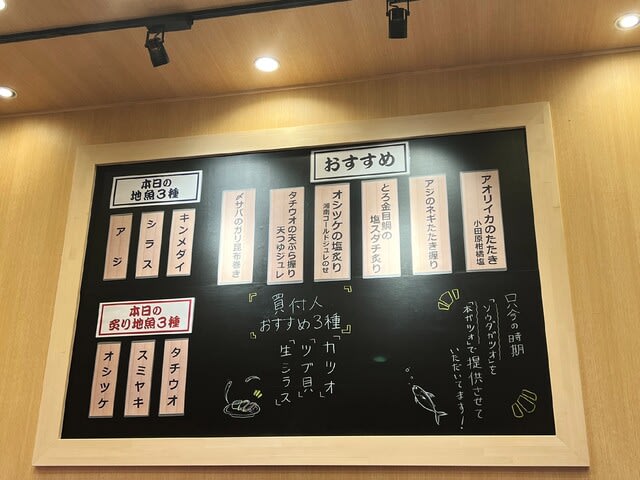 おすすめ
アオリイカのたたき
小田原柑橘塩
アジのネギたたき握り
とろ金目鯛の
塩スダチ炙り
オシツケの塩炙り
湘南ゴールドジュレのせ
タチウオの天ぷら握り
天つゆジュレ
〆サバのガリ昆布巻き
本日の
地魚3種
キンメダイ
シラス
アジ
本日の
炙り地魚3種
タチウオ
スミヤキ
オシツケ
『買付人
おすすめ3種』
「カツオ」
「ツブ貝」
「生シラス」
只今の時期
「ソウダガツオ」を
「本ガツオ」で提供させて
いただいてます!